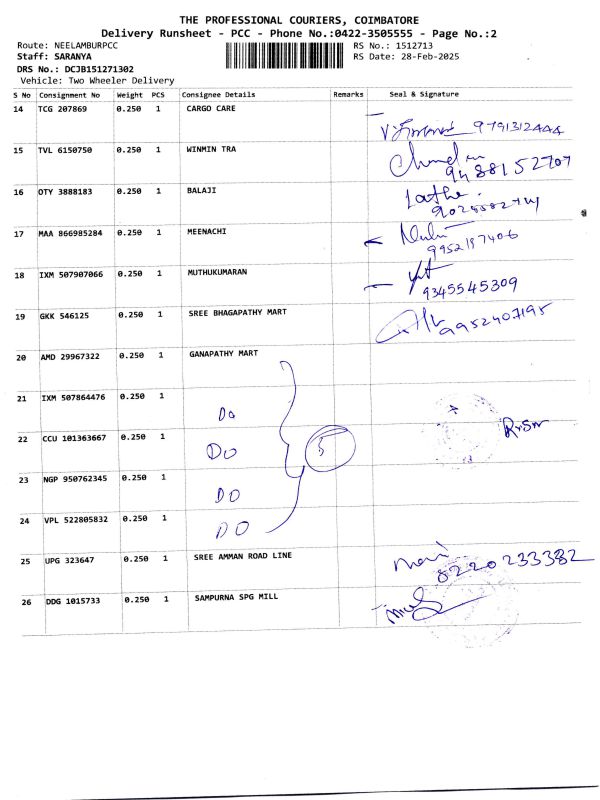 THE PROFESSIONAL COURIERS, COIMBATORE
Delivery Runsheet - PCC - Phone No.:0422-3505555 - Page No.:2
Route: NEELAMBURPCC RS No.: 1512713
Staff: SARANYA RS Date: 28-Feb-2025
DRS No.: DCJB151271302
Vehicle: Two Wheeler Delivery
S No Consignment No Weight PCS Consignee Details Remarks Seal & Signature
14 TCG 207869 0.250 1 CARGO CARE
9791312444
15 TVL 6150750 0.250 1 WINMIN TRA
9488152707
16 OTY 3888183 0.250 1 BALAJI
17 MAA 866985284 0.250 1 MEENACHI
9952197406
18 IXM 507907066 0.250 1 MUTHUKUMARAN
9345545309
19 GKK 546125 0.250 1 SREE BHAGAPATHY MART
9952407195
20 AMD 29967322 0.250 1 GANAPATHY MART
21 IXM 507864476 0.250 1 Do
22 CCU 101363667 0.250 1 DO 5
23 NGP 950762345 0.250 1 DO
24 VPL 522805832 0.250 1 DO
25 UPG 323647 0.250 1 SREE AMMAN ROAD LINE
8220233382
26 DDG 1015733 0.250 1 SAMPURNA SPG MILL